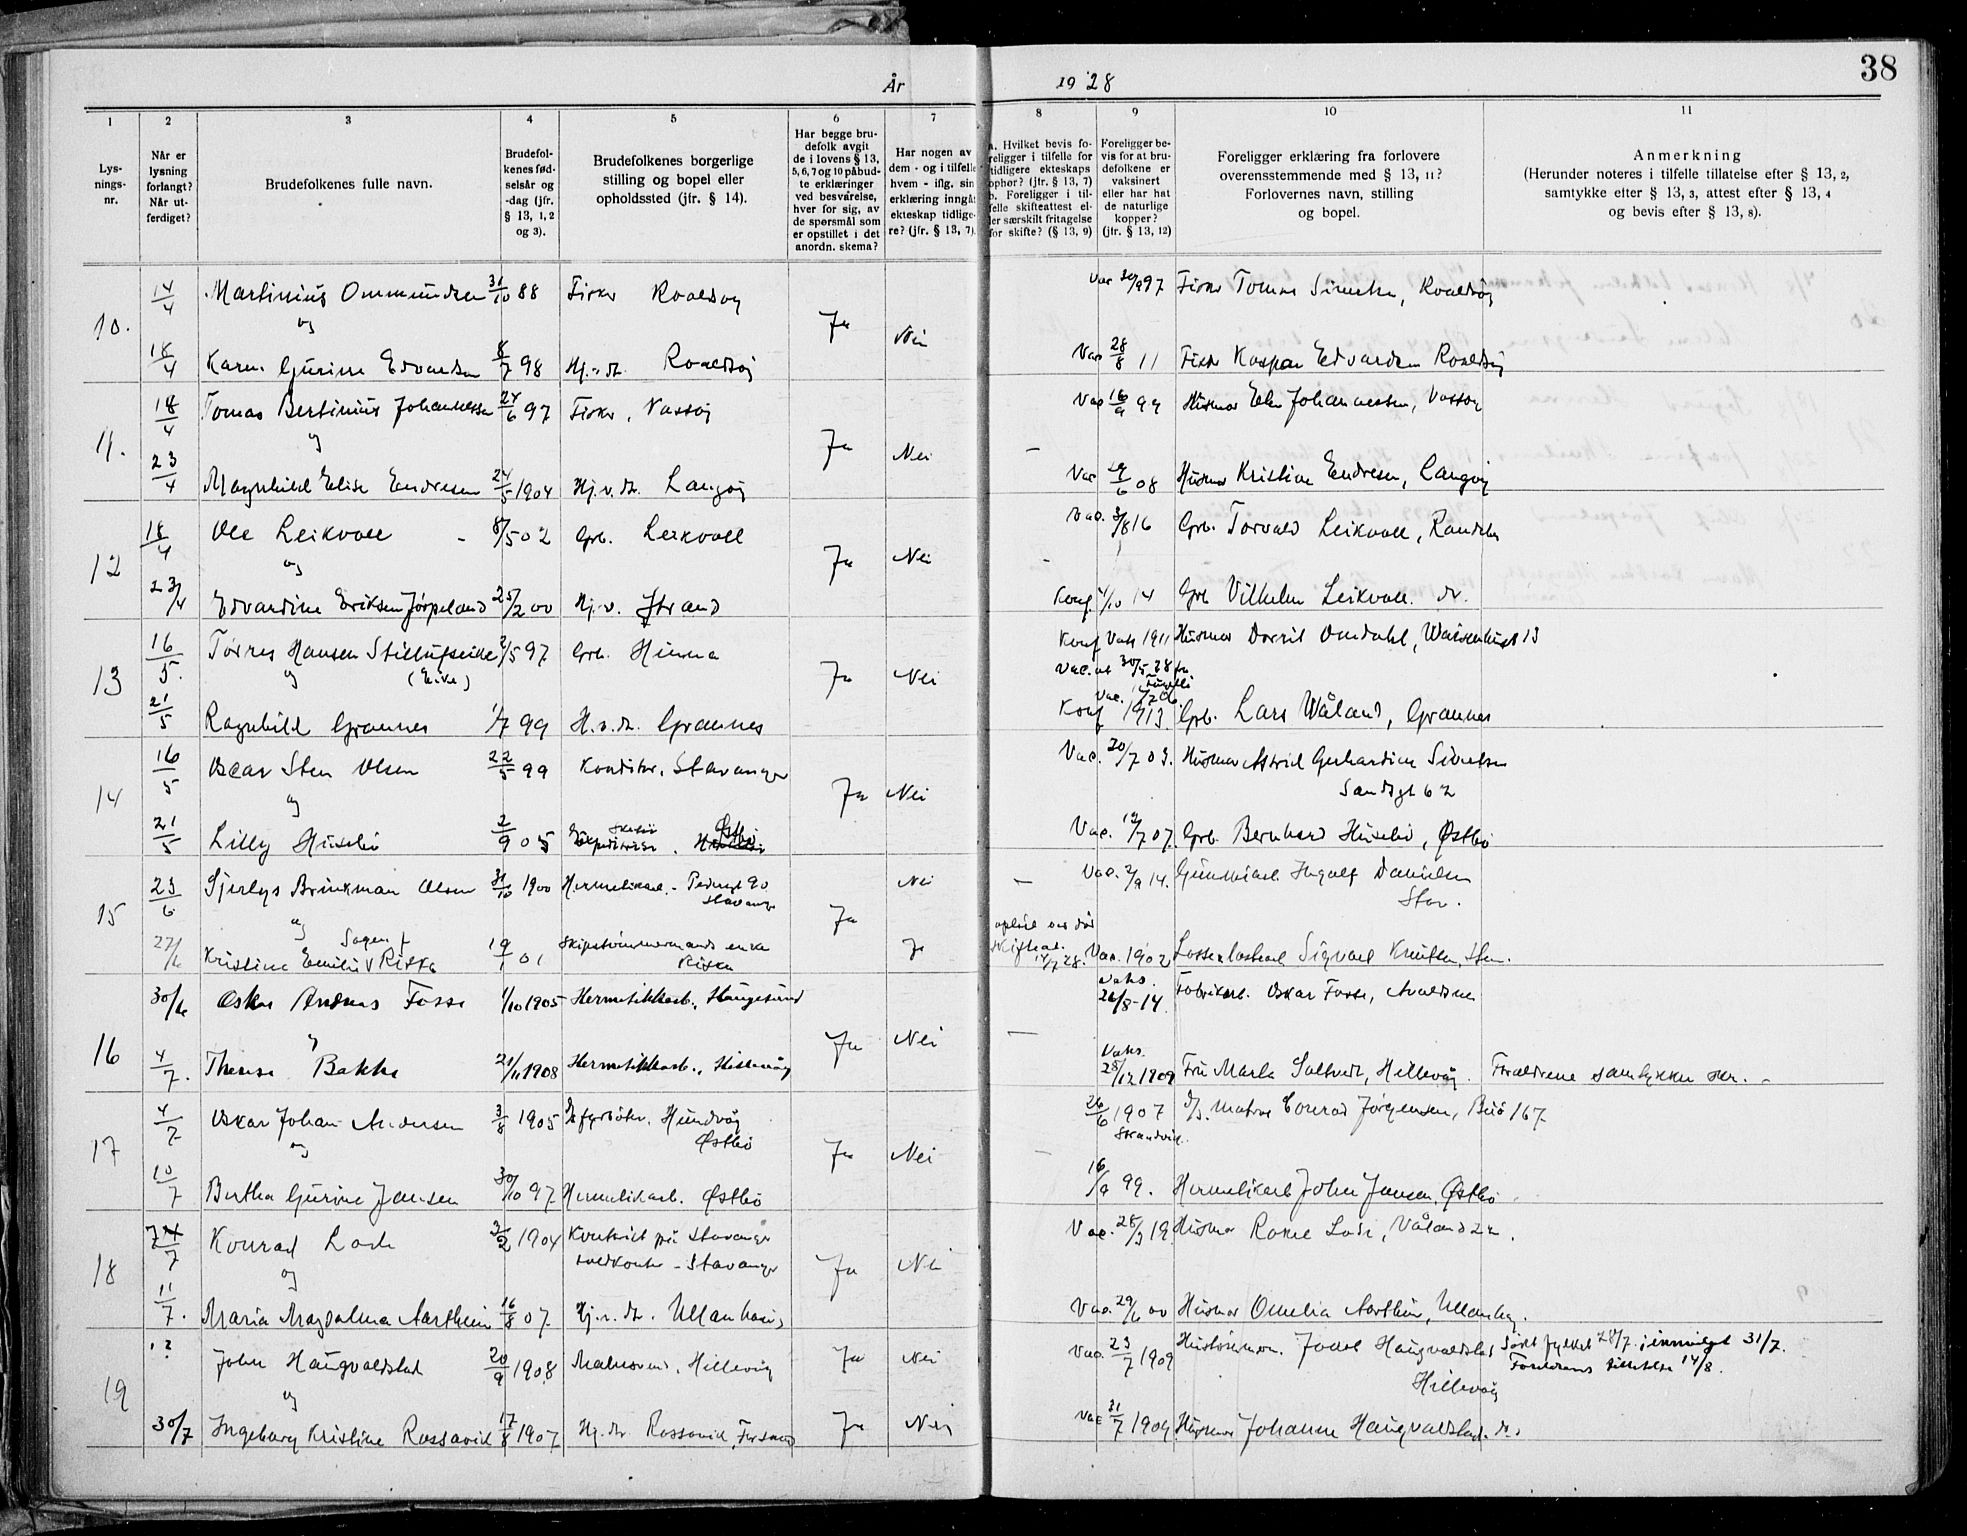 38
År 1928
1 2 3 4 5 6 7 8 9 10 11
Lysningsnr.
Når er lysning forlangt? Når utferdiget?
Brudefolkenes fulle navn.
Brudefolkenes fødselsår og -dag (jfr. § 13, 1, 2 og 3).
Brudefolkenes borgerlige stilling og bopel eller opholdssted (jfr. § 14).
Har begge brudefolk avgit de i lovens § 13, 5, 6, 7 og 10 påbudte erklæringer ved besvarelse, hver for sig, av de spørsmål som er opstillet i det anordn. skema?
Har nogen av dem - og i tilfelle hvem - iflg. sin erklæring inngåt ekteskap tidligere? (jfr. § 13, 7).
a. Hvilket bevis foreligger i tilfelle for tidligere ekteskaps ophør? (jfr. § 13, 7) b. Foreligger i tilfelle skifteattest eller særskilt fritagelse for skifte? (§ 13, 9)
Foreligger bevis for at brudefolkene er vaksinert eller har hat de naturlige kopper? (jfr. § 13, 12)
Foreligger erklæring fra forlovere overensstemmende med § 13, 11? Forlovernes navn, stilling og bopel.
Anmerkning (Herunder noteres i tilfelle tillatelse efter § 13, 2, samtykke efter § 13, 3, attest efter § 13, 4 og bevis efter § 13, 8).
10. 14/4 Martinius Ommundsen 31/10 88 Fisker Roaldsøy Vac 97 Fisker Tomas Roaldsøy
og Ja Nei
18/4 Karen Gurine Edvardsen 8/7 98 Hj.v.d. Roaldsøy Vac 28/8 11 Fisker Kaspar Edvardsen Roaldsøy
11. 18/4 Tomas Bertinius Johannessen 24/6 97 Fisker, Vassøy Vac 16/9 99 Husmor Johannessen, Vassøy
og Ja Nei –
23/4 Magnhild Elise Endresen 24/5 1904 Hj.v.d. Langøy Vac 08 Husmor Kristine Endresen, Langøy
12 18/4 Ole Leikvoll 8/5 02 Grb. Leikvoll Vac. 3/8 16 Grb. Torvald Leikvoll,
og Ja Nei
23/4 Edvardine Eriksen Jørpeland 25/2 00 Hj.v. Strand Konf. 4/10 14 Grb Vilhelm Leikvoll. do.
13 16/5. Torres Hansen 2/5 97 Grb. Hinna Konf Vaks 1911 Husmor Dorrit Omdahl, 13
og (Eike) Ja Nei Vac. at 30/5 28 fra
21/5 Ragnhild Grannes 1/7 99 H.v.d. Grannes Konf 1913. Grb. Lars Wåland, Grannes
14 16/5 Oscar Sten Olsen 22/5 99 Konditor, Stavanger Vac. 20/7 03. Husmor Astrid Gerhardine Sivertsen
og Ja Nei Sandsgt 62
21/5 Lilly Husebø 2/9 05 Østbø Vac. 12/7 07. Grb. Bernhard Husebø, Østbø
15 23/6 Brinkman Olsen 31/10 1900 Hermetikarb. – Pedersgt 90 Stavanger Nei – Vac. 2/9 14. Ingolf Danielsen
og Ja Stav.
27/6 Kristine Emilie Riska 19/1 01 Skipstømmermands enke Riska Ja Vac. 1902 Sigvard Knutsen, Stav.
16 30/6 Oskar Andreas Fosse 1/10 1905 Hermetikkarb., Haugesund Vaks. 26/8-14 Fabrikarb. Oskar Fosse, Avaldsnes
Ja Nei –
4/7. Therese Bakke 21/11 1908 Hermetikkarb., Hillevåg Vaks. 28/12 1909 Fru Marta Hillevåg. Forældrene samtykker
17 4/7 Oskar Johan Andersen 3/8 1905 fyrbøter, Hundvåg 26/6 1907 Matros Conrad Jørgensen, Buø 167.
og Østbø Ja Nei –
10/7 Bertha Gurine Jansen 30/10 97 Hermetikarb. Østbø 16/9 99. Hermetikarb John Jansen, Østbø
18 7/7 Konrad Lode 3/2 1904 Kontorist på Stavanger Vac. 28/3 19. Husmor Lode, Våland
tollkontor – Stavanger
og Ja Nei
11/7. Maria Magdalena Aartheim 16/8 07. Hj.v.d. Ullandhaug Vac. 29/6 00 Husmor Omelia Aartheim, Ullandhg.
19 ? John Haugvaldstad 20/9 1908 Malersvend, Hillevåg Ja Nei Vac. 23/7 1909 Haugvaldstad Søkt fylket 28/7. innvilget 31/7.
og Hillevåg Foreldrenes tillatelse 14/8.
30/7 Ingeborg Kristine Rossavik 17/8 1907 Hj.d. Rossavik, Forsand Ja Nei Vac 21/7 1909 Husmor Johanne Haugvaldstad. do.